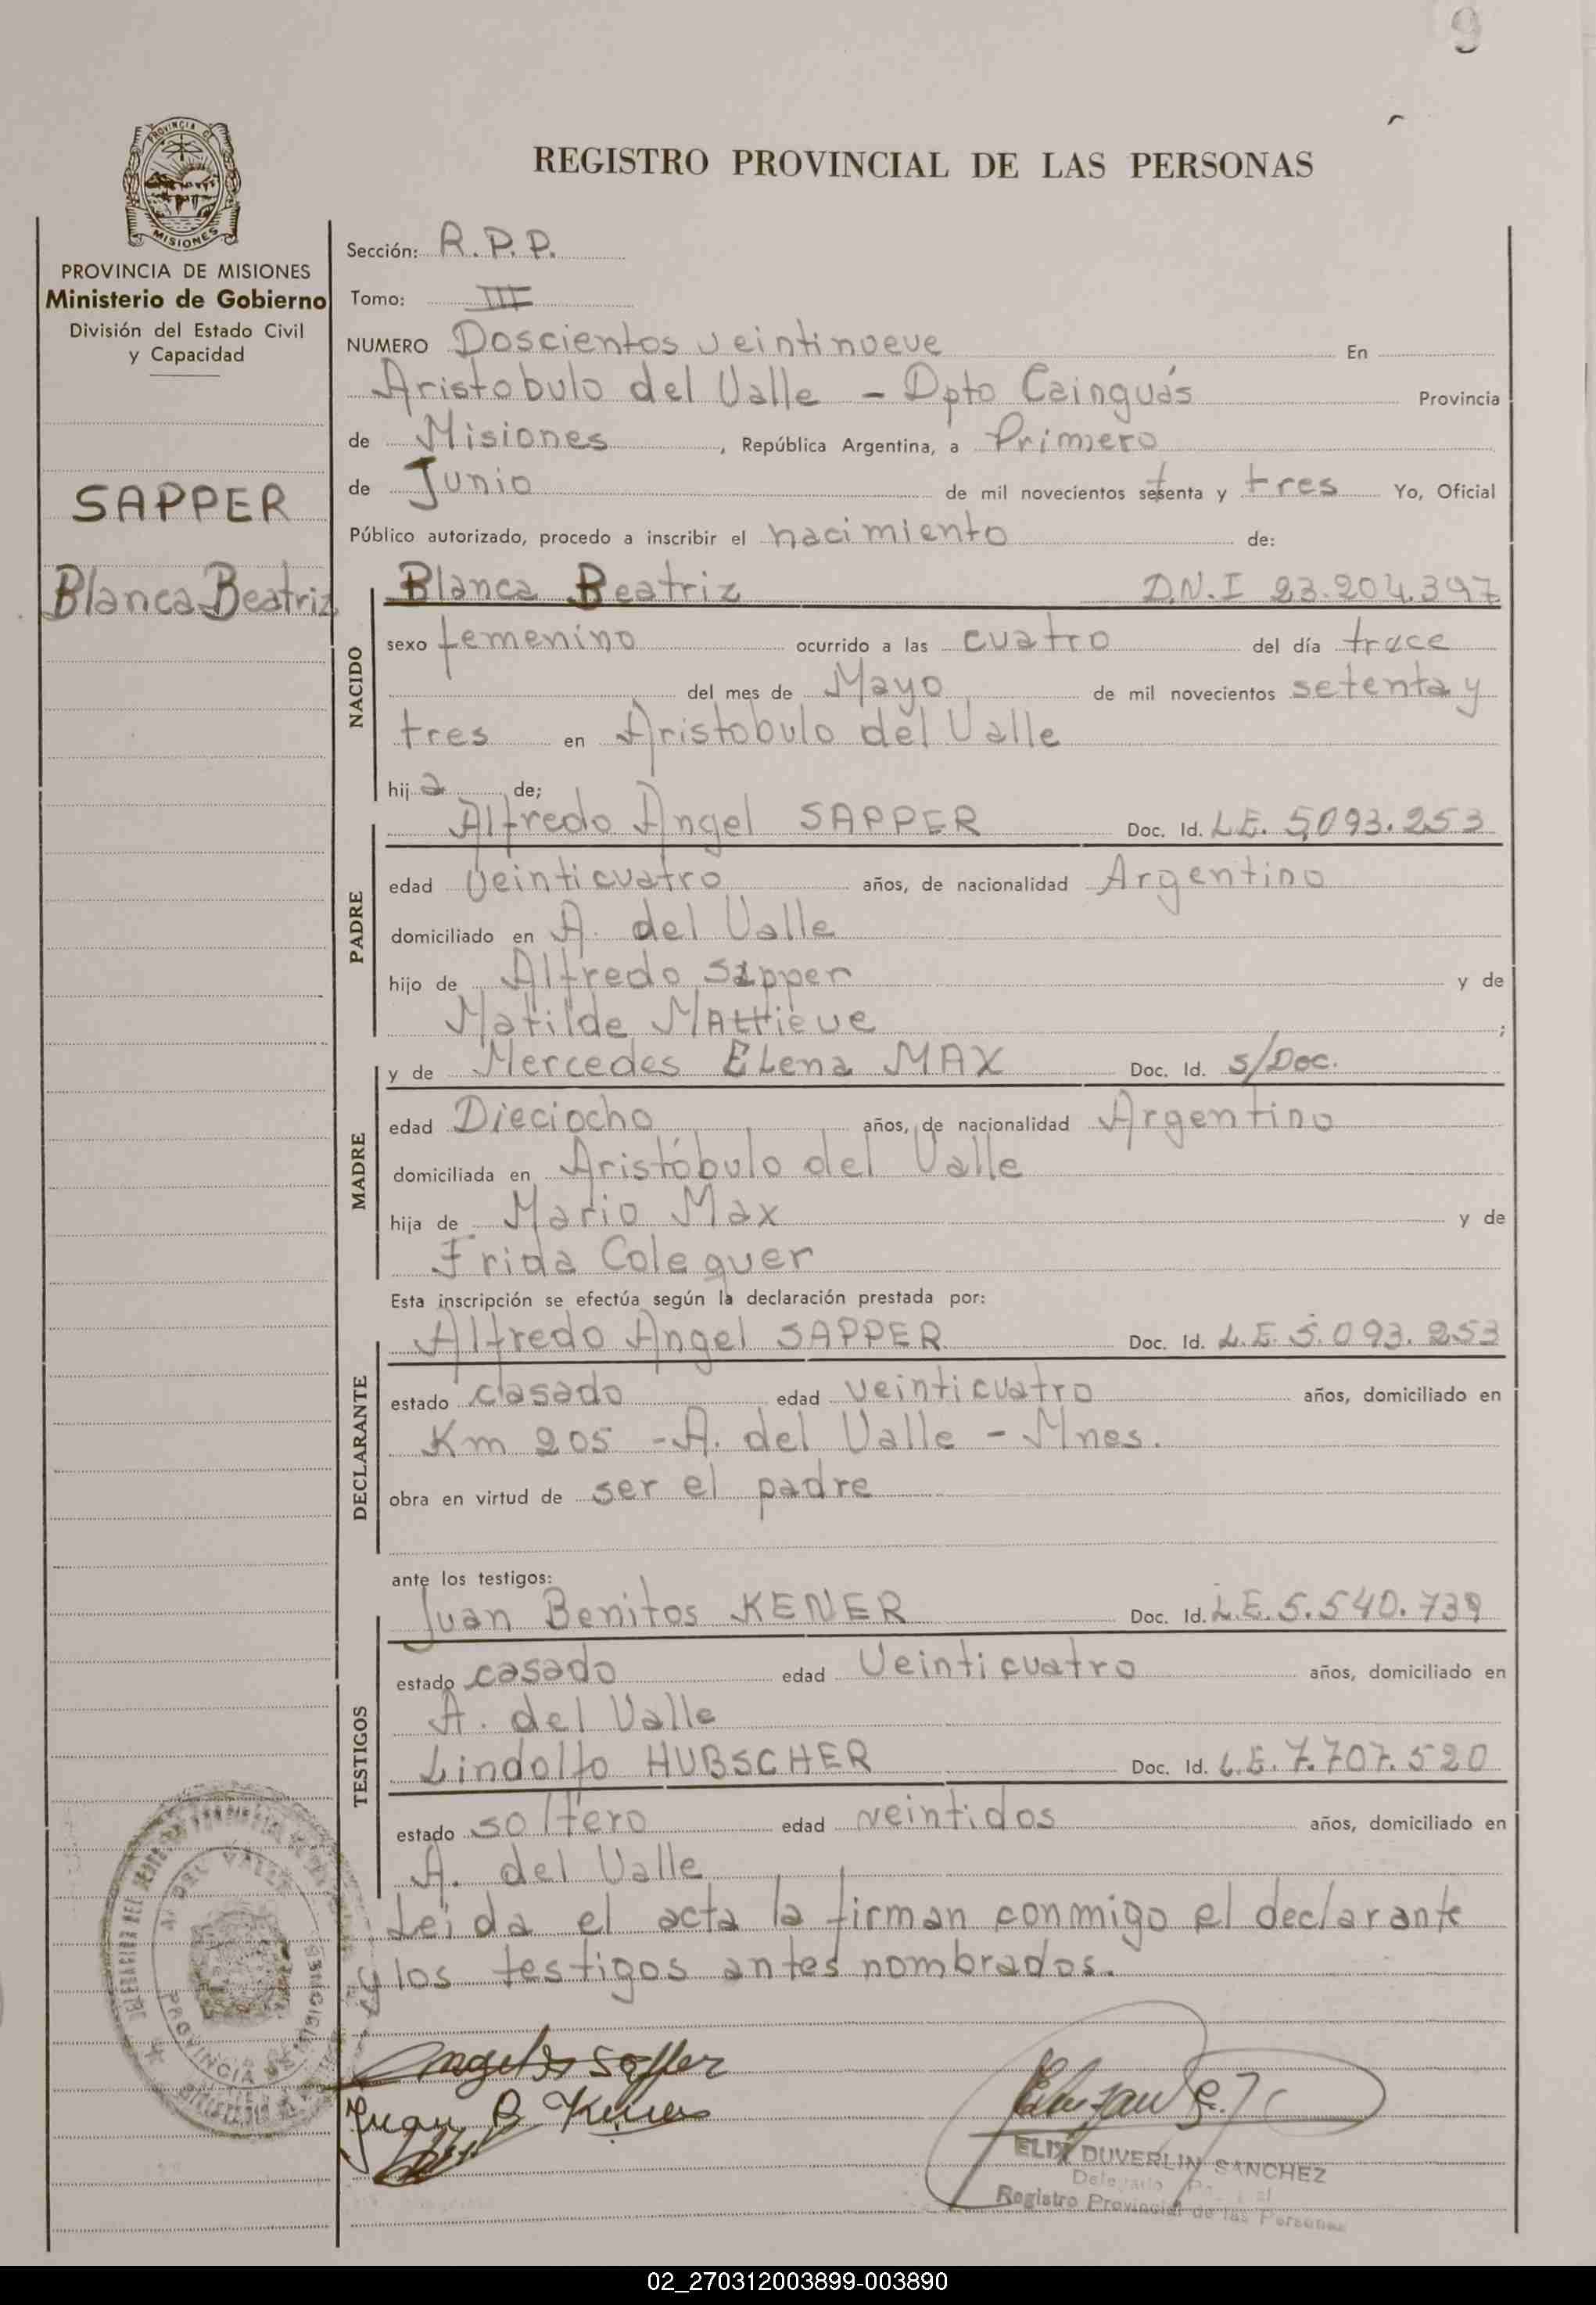 9
REGISTRO PROVINCIAL DE LAS PERSONAS
MISIONES
PROVINCIA DE MISIONES
Ministerio de Gobierno
División del Estado Civil
y Capacidad
SAPPER
Blanca Beatriz
Sección: R.P.P.
Tomo: III
NUMERO Doscientos veintinueve En
Aristobulo del Valle - Dpto Cainguás Provincia
de Misiones, República Argentina, a Primero
de Junio de mil novecientos setenta y tres Yo, Oficial
Público autorizado, procedo a inscribir el nacimiento de:
NACIDO
Blanca Beatriz D.N.I 23.204.397
sexo femenino ocurrido a las cuatro del día trece
del mes de Mayo de mil novecientos setenta y
tres en Aristobulo del Valle
hija de;
PADRE
Alfredo Angel SAPPER Doc. Id. L.E. 5.093.253
edad veinticuatro años, de nacionalidad Argentino
domiciliado en A. del Valle
hijo de Alfredo Sapper y de
Matilde Mattieue;
MADRE
y de Mercedes Elena MAX Doc. Id. s/Doc.
edad Dieciocho años, de nacionalidad Argentino
domiciliada en Aristóbulo del Valle
hija de Mario Max y de
Frida Colequer
Esta inscripción se efectúa según la declaración prestada por:
DECLARANTE
Alfredo Angel SAPPER Doc. Id. L.E. 5.093.253
estado casado edad veinticuatro años, domiciliado en
Km 205 - A. del Valle - Mnes.
obra en virtud de ser el padre
ante los testigos:
TESTIGOS
Juan Benitos KENER Doc. Id. L.E. 5.540.739
estado casado edad Veinticuatro años, domiciliado en
A. del Valle
Lindolfo HUBSCHER Doc. Id. L.E. 7.707.520
estado soltero edad veintidos años, domiciliado en
A. del Valle
Leida el acta la firman conmigo el declarante
y los testigos antes nombrados.
A. DEL VALLE
PROVINCIA
Juan B Kener
ELIX DUVERLIN SANCHEZ
Registro Provincial de las Personas
02_270312003899-003890